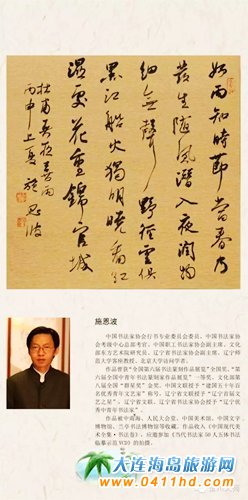 好雨知时节当春乃
发生随风潜入夜润物
细无声野径云俱
黑江船火独明晓看红
湿处花重锦官城
杜甫春夜喜雨
丙申上夏施恩波
施恩波
中国书法家协会行书专业委员会委员、中国书法家协
会考级中心总部考官、中国职工书法家协会副主席、文化
部东方艺术院研究员、辽宁省书法家协会副主席、辽宁师
范大学客座教授、北京大学访问学者。
作品曾获“全国第六届书法篆刻作品展览”全国奖、“第
六届全国中青年书法篆刻家作品展览”一等奖、文化部第
六届全国“群星奖”金奖。中国文联授予“建国五十年百
名优秀青年文艺家”称号,辽宁省文联授予“辽宁省首届文
艺之星”、辽宁省文联、辽宁省书法家协会授予“辽宁优
秀中青年书法家”。
作品被中南海、人民大会堂、中国美术馆、中国文字
博物馆、兰亭书法博物馆等收藏。作品收入《中国现代美
术全集·书法卷》,应邀参加《当代书法家50人五体书法
临摹示范VCD》的拍摄。
大连海岛旅游网